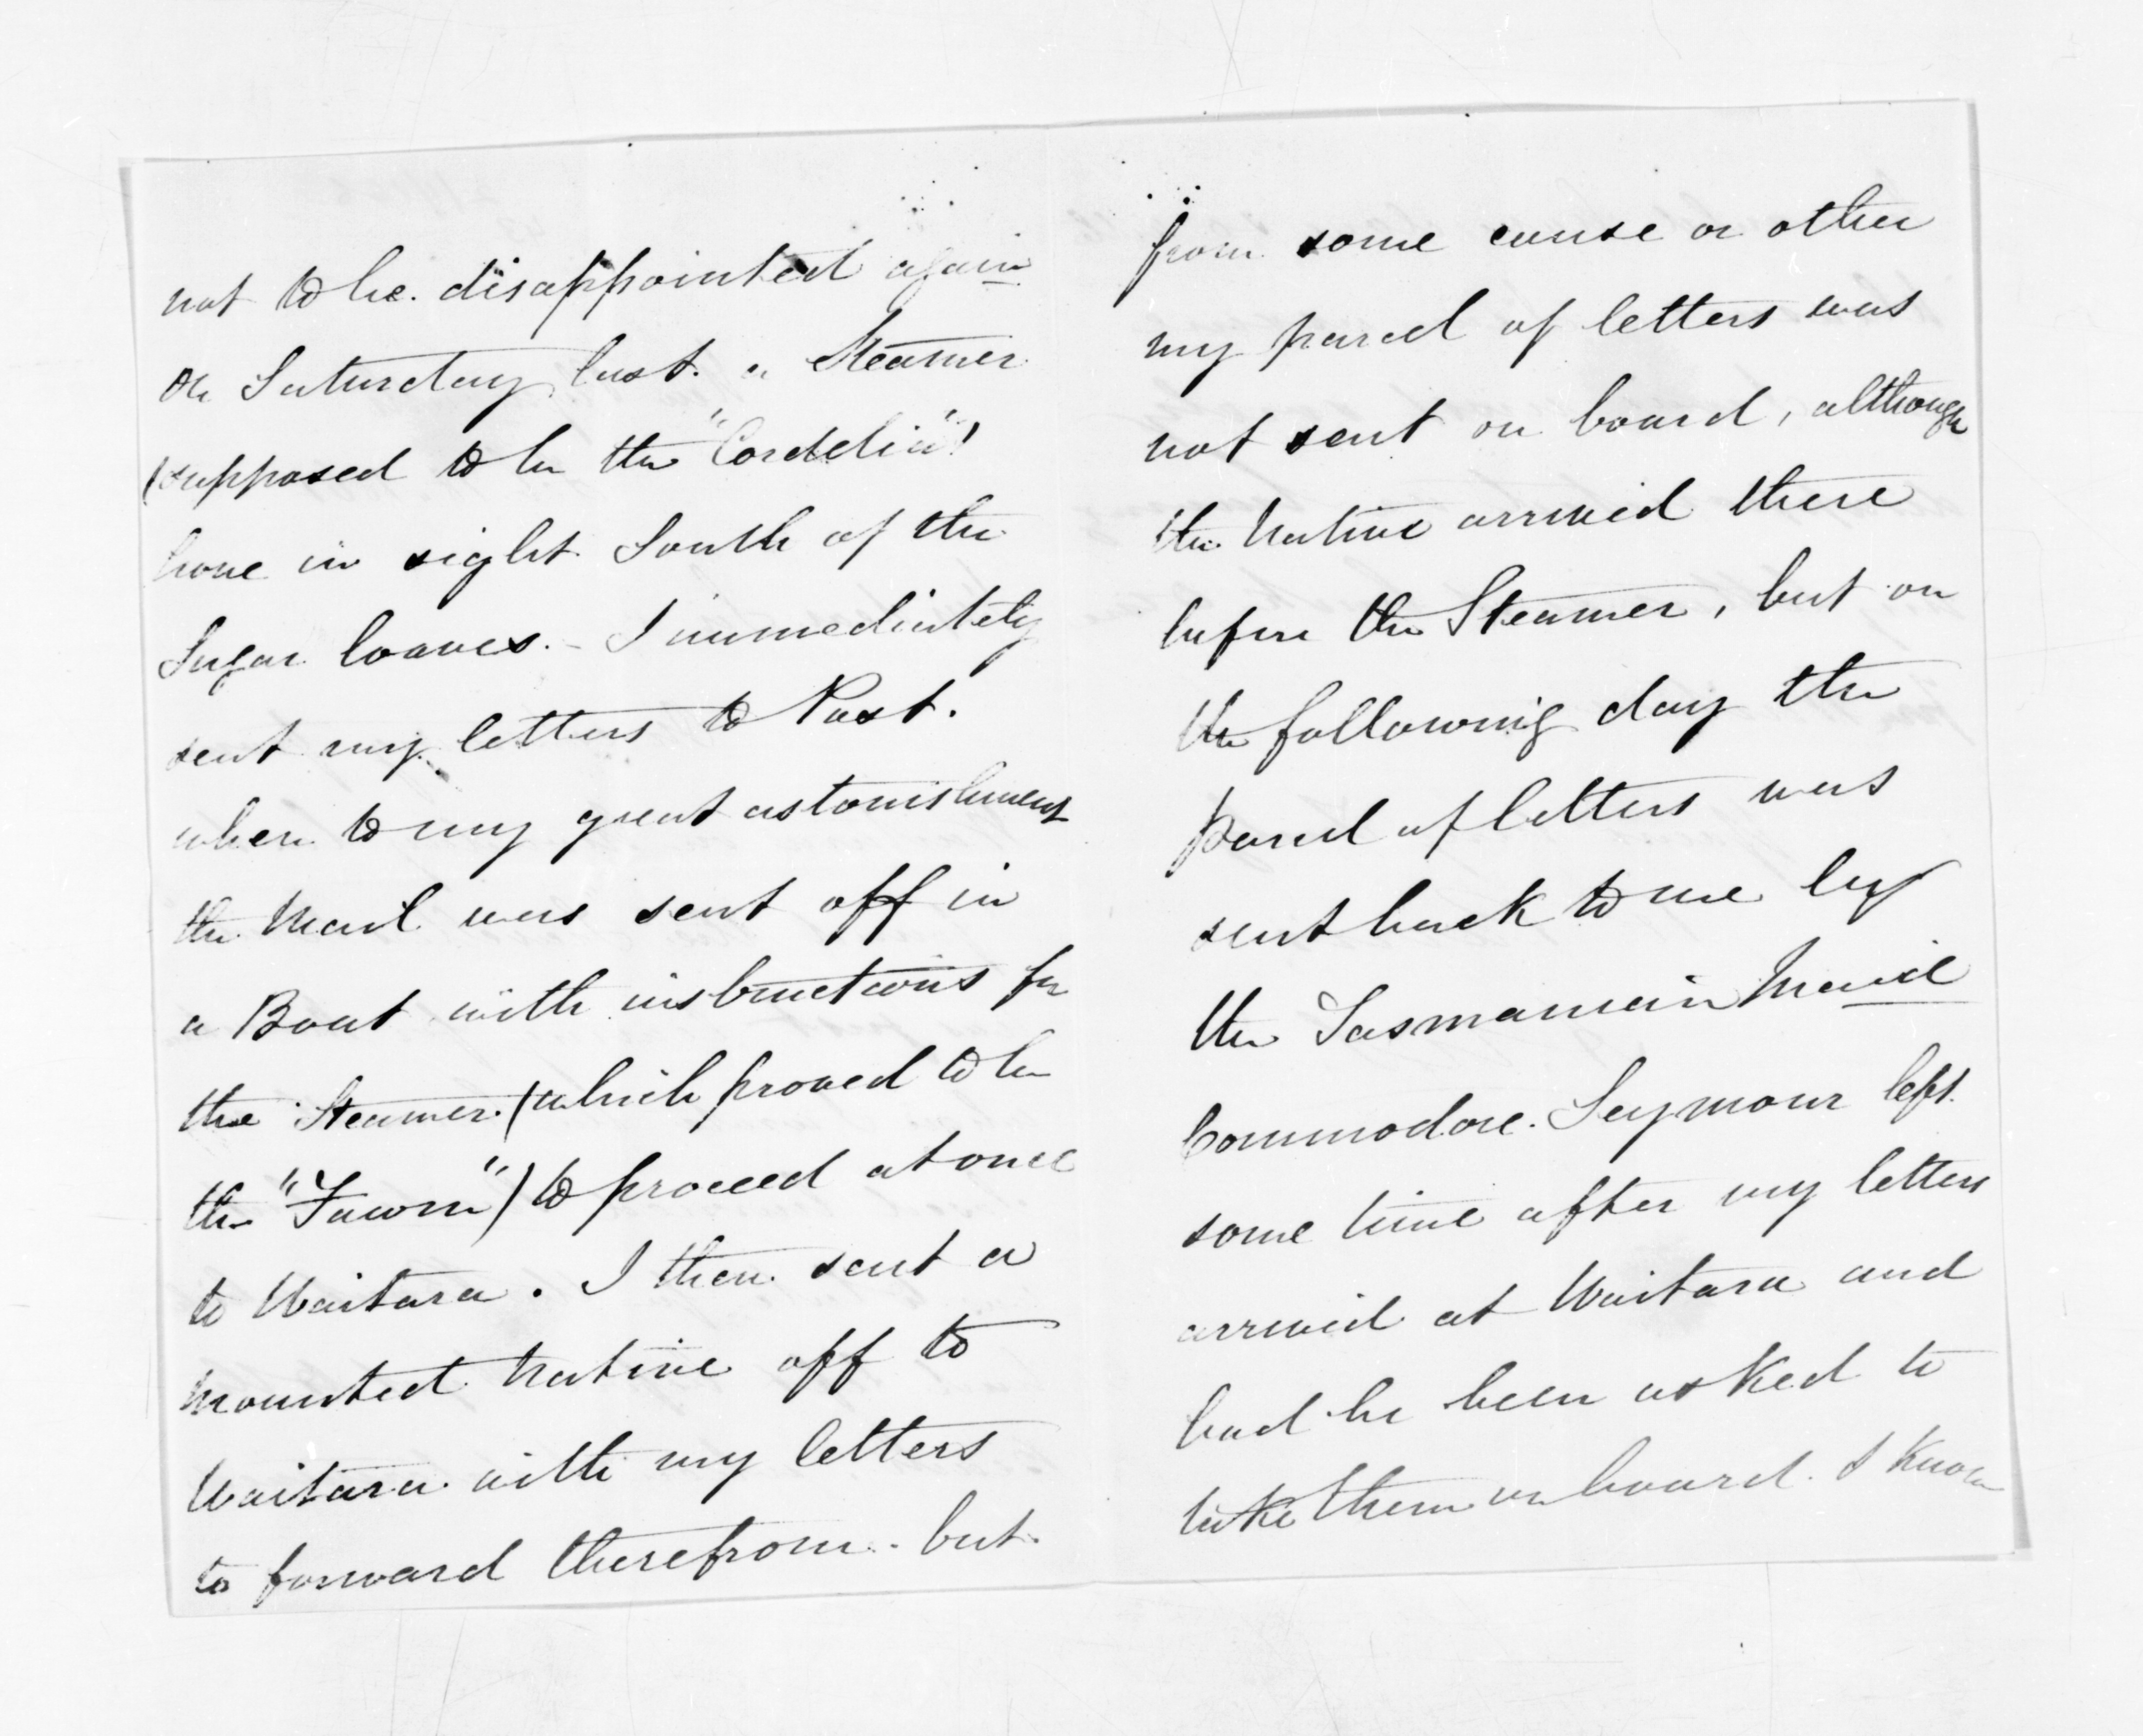 not to be disappointed again
On Saturday last. a Steamer
(supposed to be the "Cordelia")
hove in sight South of the
Sugar loaves. - I immediately
sent my letters to Post.
when to my great astonishment
the Mail was sent off in
a Boat with instructions for
the Steamer (which proved to be
the "Fawn") to proceed at once
to Waitara. I then sent a
mounted Native off to
Waitara with my letters
to forward therefrom. but
from some cause or other
my parcel of letters was
not sent on board, although
the Native arrived there
before the Steamer, but on
the following day the
parcel of letters was
sent back to me by
the Tasmanian Maid
Commodore Seymour left
some time after my letters
arrived at Waitara and
had he been asked to
take them on board. I know